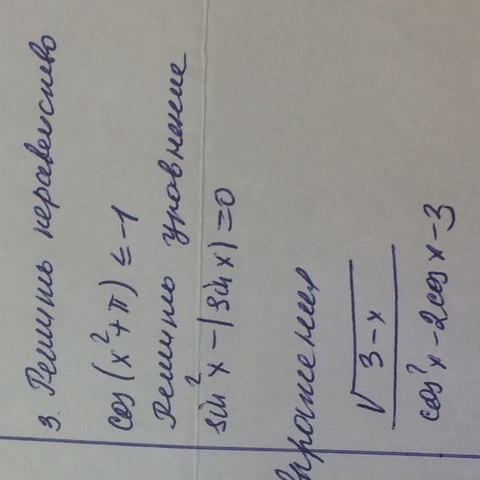 3. Решить неравенство
cos(x²+π) ≤ -1
Решить уравнение
sin²x - |sin x| = 0
выражения
√3-x
cos²x - 2cos x - 3